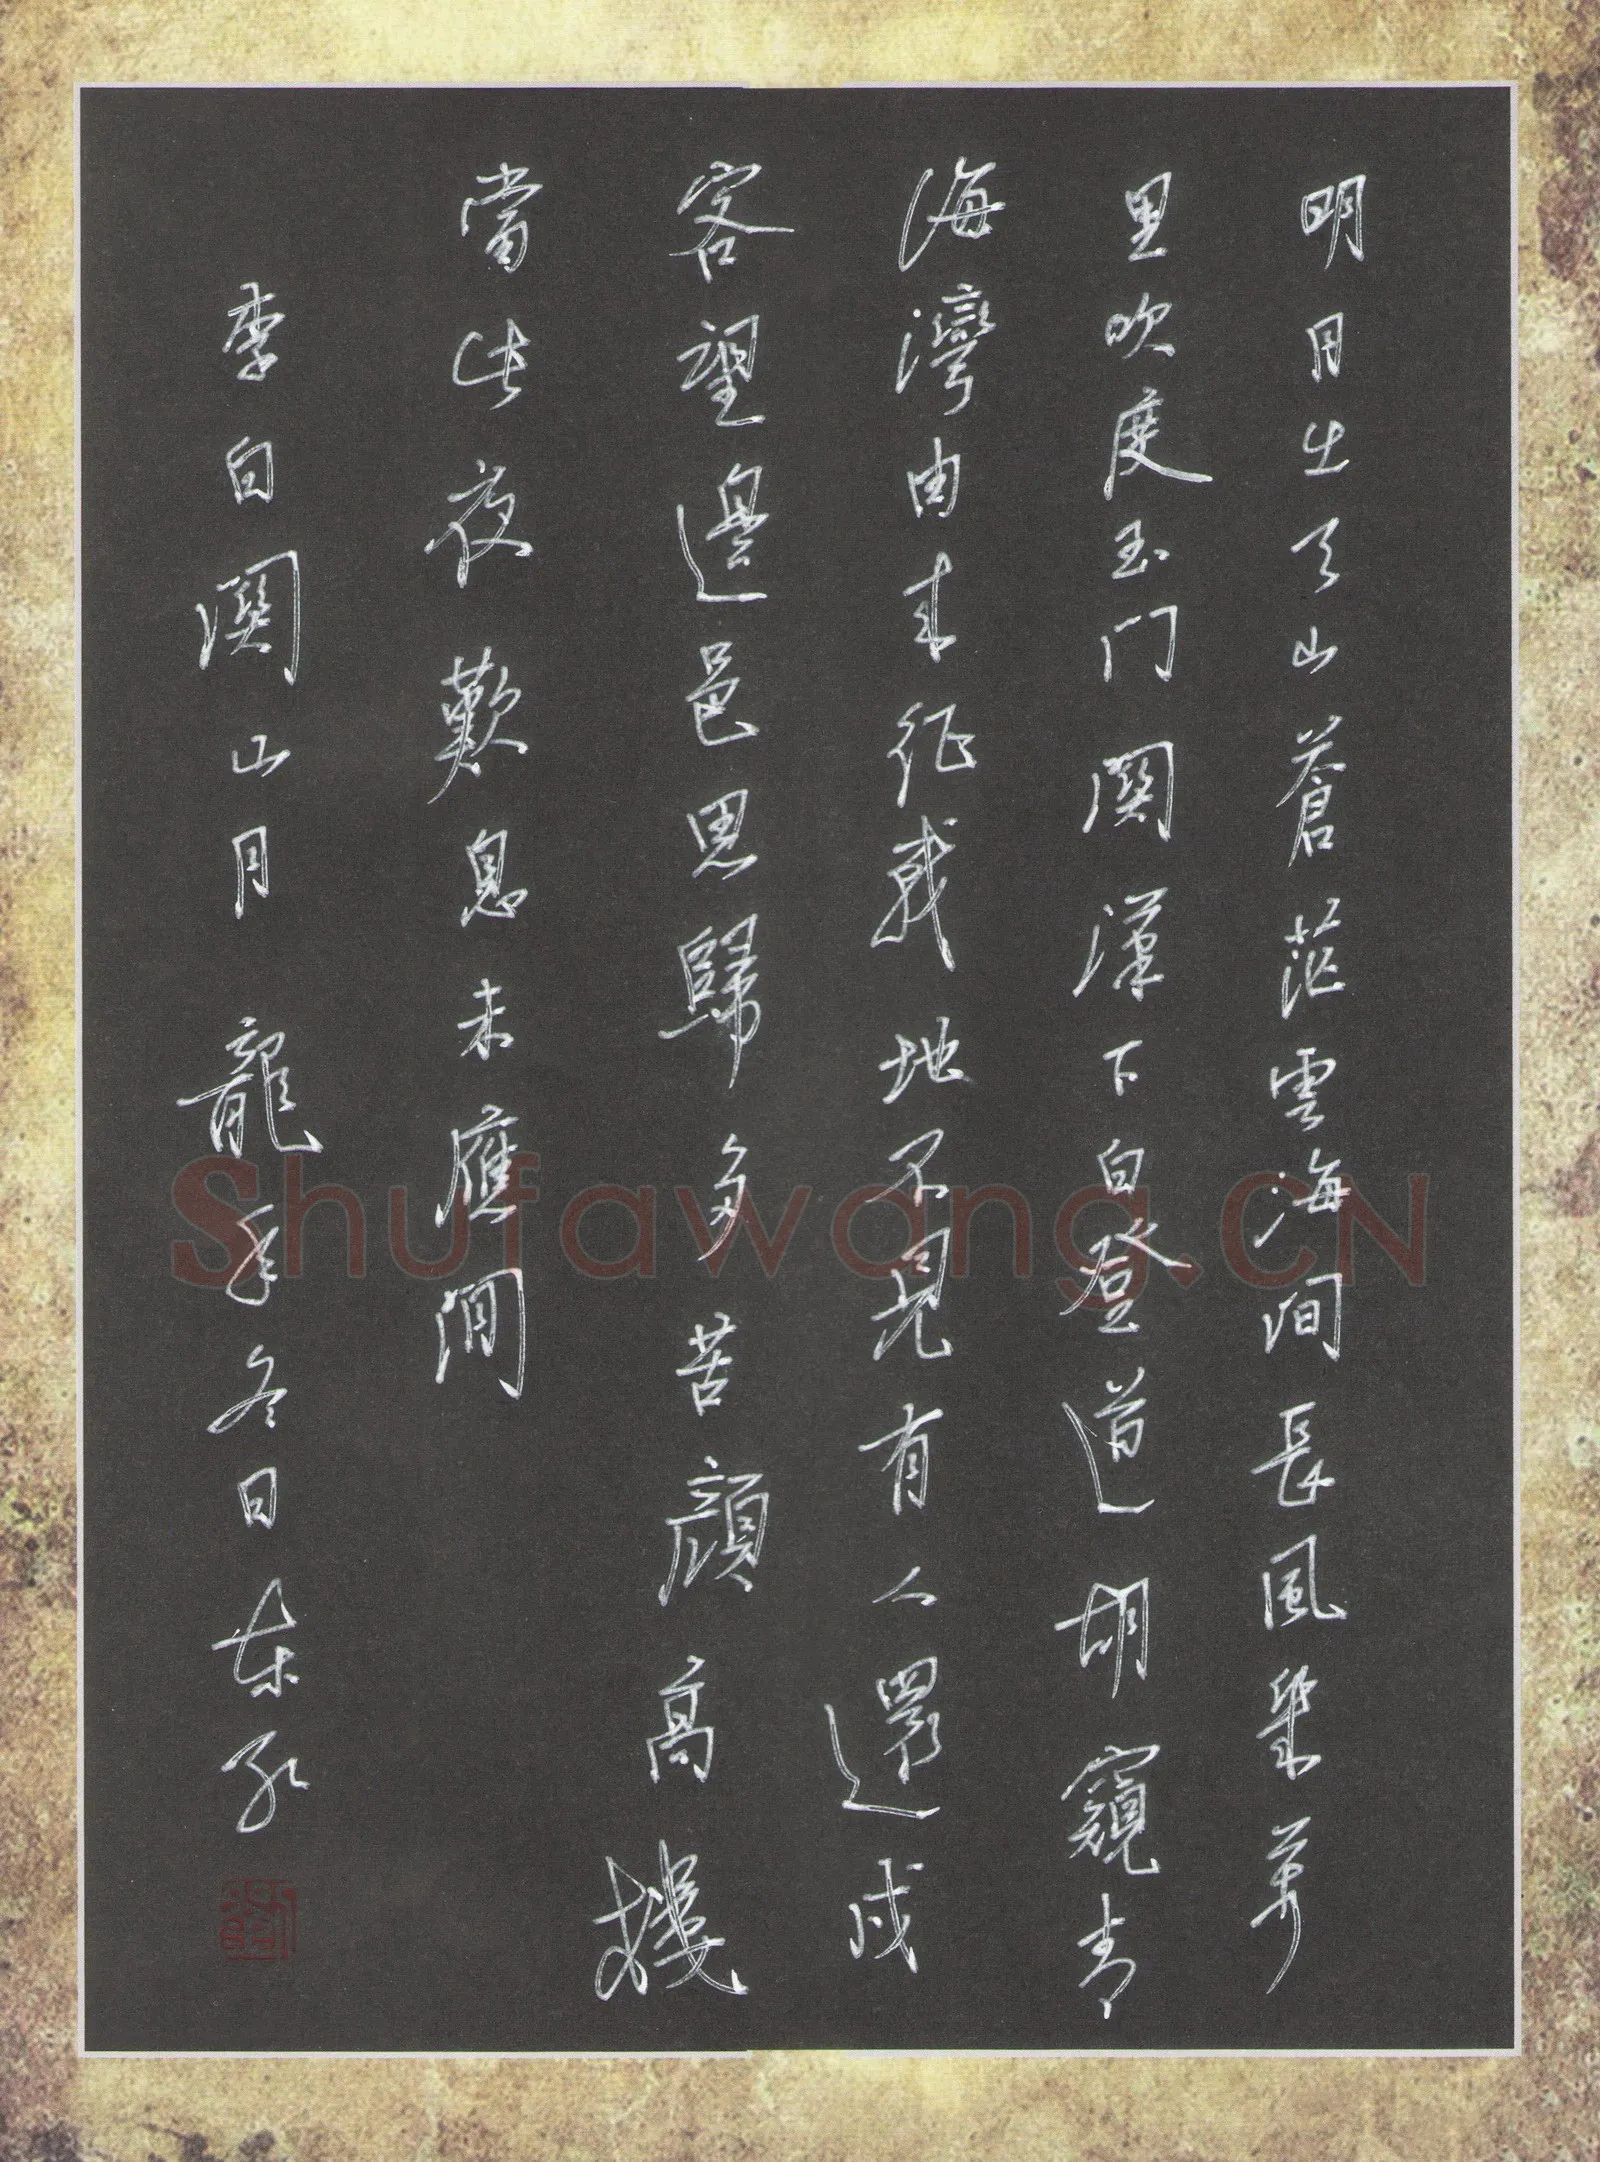 明月出天山蒼茫雲海間長風幾萬
里吹度玉門關漢下白登道胡窺青
海灣由來征戰地不見有人還戍
客望邊邑思歸多苦顏高樓
當此夜歎息未應閒
李白關山月 龍年冬日
Shufawang.CN